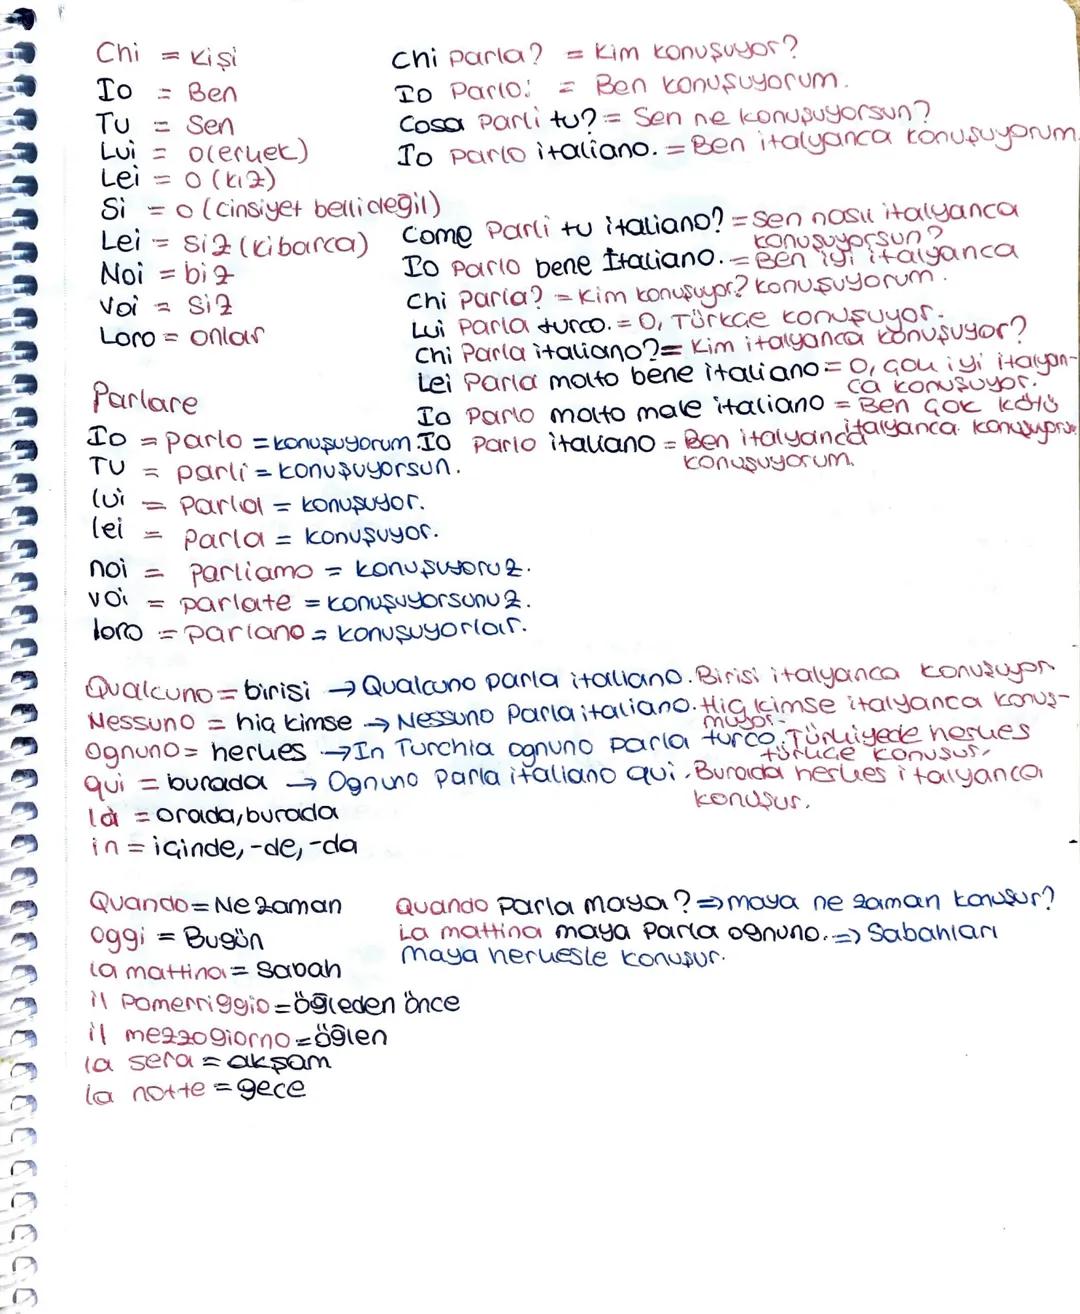 Chi = kişi
Io = Ben
Tu = Sen
Lui = o(erkek)
Lei = o (kız)
Si = o (cinsiyet belli degil)
Lei = siz (kibarca)
Noi = biz
Voi = siz
Loro = onlar
Chi parla? = Kim konuşuyor?
Io Parlo. = Ben konuşuyorum.
Cosa Parli tu? = Sen ne konuşuyorsun?
Io parlo italiano. = Ben italyanca konuşuyorum.
Come Parli tu italiano? = Sen nasıl italyanca
konuşuyorsun?
Io parlo bene Italiano. = Ben iyi italyanca
konuşuyorum.
Chi parla? = Kim konuşuyor?
Lui Parla turco. = O, Türkçe konuşuyor.
Chi Parla italiano? = Kim italyanca konuşuyor?
Lei Parla molto bene italiano = O, çok iyi italyan-
ca konuşuyor.
Io Parlo molto male italiano = Ben çok kötü
italyanca konuşuyorum
Io Parlo italiano = Ben italyanca
konuşuyorum.
Parlare
Io = parlo = konuşuyorum.
Tu = parli = konuşuyorsun.
lui = Parla = konuşuyor.
lei = Parla = konuşuyor.
noi = parliamo = konuşuyoruz.
voi = parlate = konuşuyorsunuz.
loro = parlano = konuşuyorlar.
Qualcuno = birisi → Qualcuno parla italiano. Birisi italyanca konuşuyor
Nessuno = hiç kimse → Nessuno Parla italiano. Hiç kimse italyanca konuş-
muyor.
Ognuno = herkes → In Turchia ognuno parla turco. Türkiyede herkes
türkçe konuşur.
qui = burada → Ognuno parla italiano qui. Burada herkes italyanca
konuşur.
là = orada, burada
in = içinde, -de, -da
Quando = Ne zaman
Oggi = Bugün
la mattina = sabah
il Pomerriggio = öğleden önce
il mezzogiorno = öğlen
la sera = akşam
la notte = gece
Quando Parla maya? ⇒ maya ne zaman konuşur?
La mattina maya Parla ognuno. ⇒ Sabahları
maya herkesle konuşur.